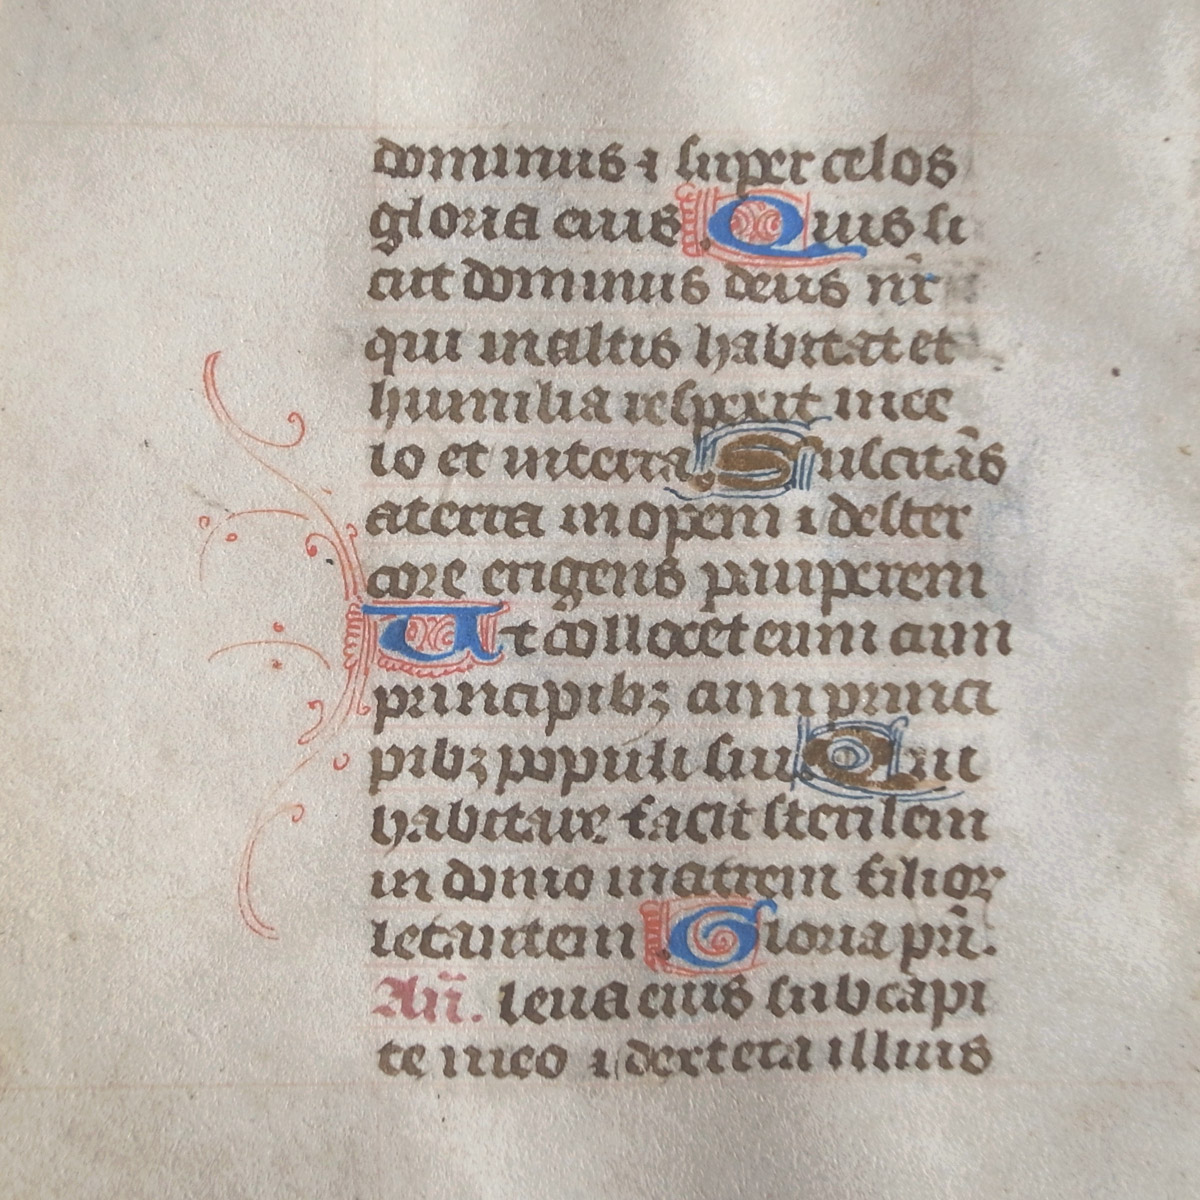 dominus ⁊ super celos
gloria eius Quis si
cut dominus deus nr̄
qui in altis habitat et
humilia respexit in ce
lo et in terra. Suscitās
a terra inopem ⁊ de ster
core erigens pauperem
Ut collocet eum cum
principibꝫ cum princi
pibꝫ populi sui Qui
habitare facit sterilem
in domo matrem filioꝝ
letantem. Gloria pr̄i.
An̄. Leua eius sub capi
te meo ⁊ dextera illius